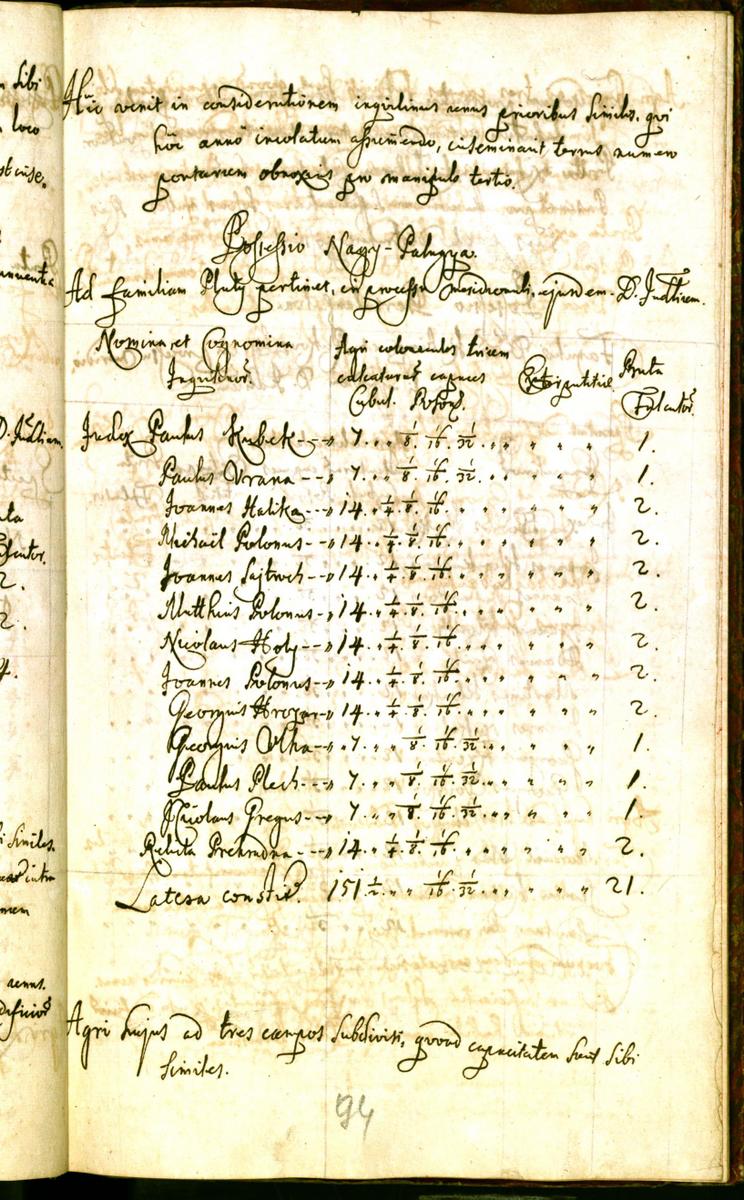 Hic venit in considerationem inquilinus unus prioribus similis, qvi
hôc annô incolatum assumendo, inseminavit terras numero
portarum obnoxias pro manipulo tertio.
Possessio Nagy-Palugya.
Ad familiam Pluty pertinet, in processu meridionali, ejusdem D. Judlium.
Nomina et Cognomina
Inquilinor.
Agri colonicales tricem
calcaturas capaces
Cubul. Poson.
Extirpatitiae
Pruta
Falcator.
Judex Paulus Kubek 7. 1/8. 1/16. 1/32. 1.
Paulus Vrana 7. 1/8. 1/16. 1/32. 1.
Joannes Halika 14. 1/4. 1/8. 1/16. 2.
Michaël Polonus 14. 1/4. 1/8. 1/16. 2.
Joannes 14. 1/4. 1/8. 1/16. 2.
Matthias Polonus 14. 1/4. 1/8. 1/16. 2.
Nicolaus Holy 14. 1/4. 1/8. 1/16. 2.
Joannes Polonus 14. 1/4. 1/8. 1/16. 2.
Georgius 14. 1/4. 1/8. 1/16. 2.
Georgius Vlha 7. 1/8. 1/16. 1/32. 1.
Paulus Plech 7. 1/8. 1/16. 1/32. 1.
Nicolaus Gregus 7. 1/8. 1/16. 1/32. 1.
Relicta 14. 1/4. 1/8. 1/16. 2.
Latera constit. 151. 1/2. 1/16. 1/32. 21.
Agri hujus ad tres campos subdivisi, qvoad capacitatem sunt sibi
similes.
94